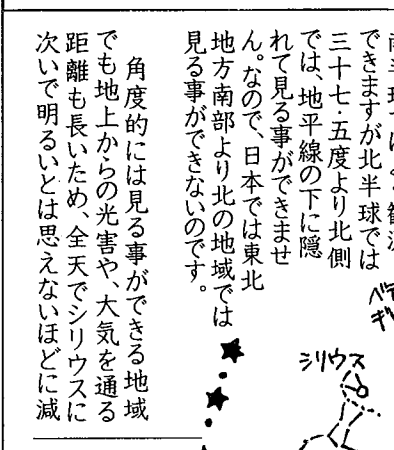 できますが北半球では
三十七・五度より北側
では、地平線の下に隠
れて見る事ができませ
ん。なので、日本では東北
地方南部より北の地域では
見る事ができないのです。
角度的には見る事ができる地域
でも地上からの光害や、大気を通る
距離も長いため、全天でシリウスに
次いで明るいとは思えないほどに減
シリウス